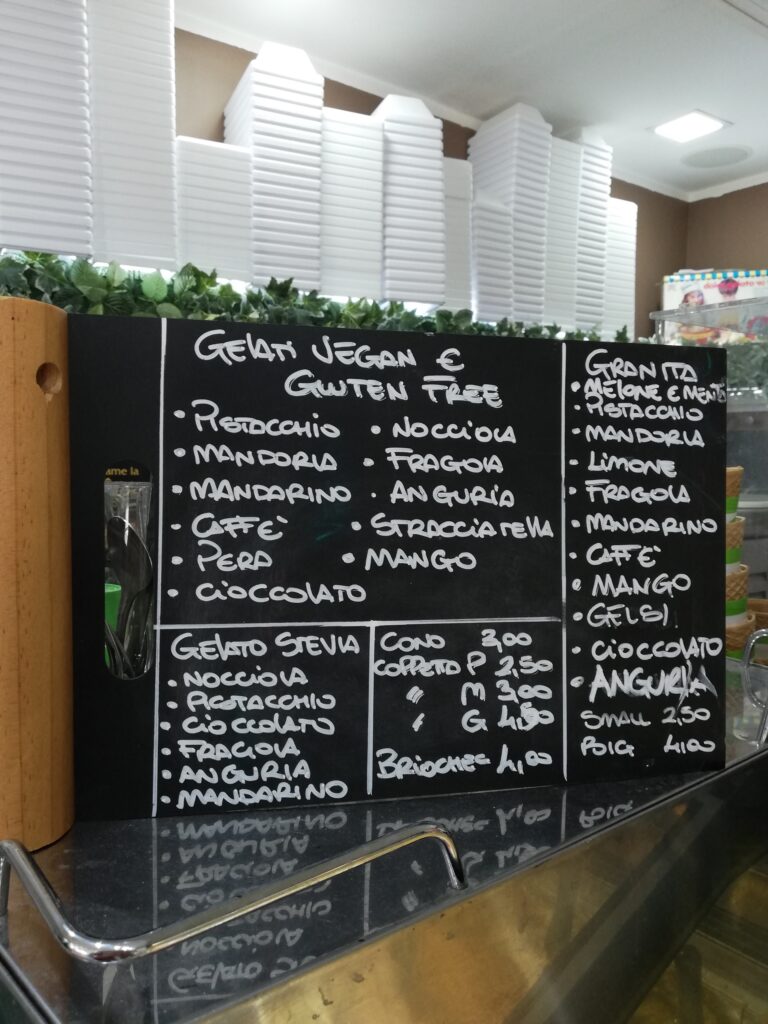 GELATI VEGAN E
GLUTEN FREE
• PISTACCHIO
• MANDORLA
• MANDARINO
• CAFFE'
• PERA
• CIOCCOLATO
• NOCCIOLA
• FRAGOLA
• ANGURIA
• STRACCIATELLA
• MANGO
GELATO STEVIA
• NOCCIOLA
• PISTACCHIO
• CIOCCOLATO
• FRAGIOLA
• ANGURIA
• MANDARINO
CONO 3,00
COPPETO P 2,50
" M 3,00
" G 4,50
BRIOCHE 4,00
GRANITA
• MELONE E MENTA
• PISTACCHIO
• MANDORLA
• LIMONE
• FRAGOLA
• MANDARINO
• CAFFE'
• MANGO
• GELSI
• CIOCCOLATO
• ANGURIA
SMALL 2,50
BIG 4,00
ame la